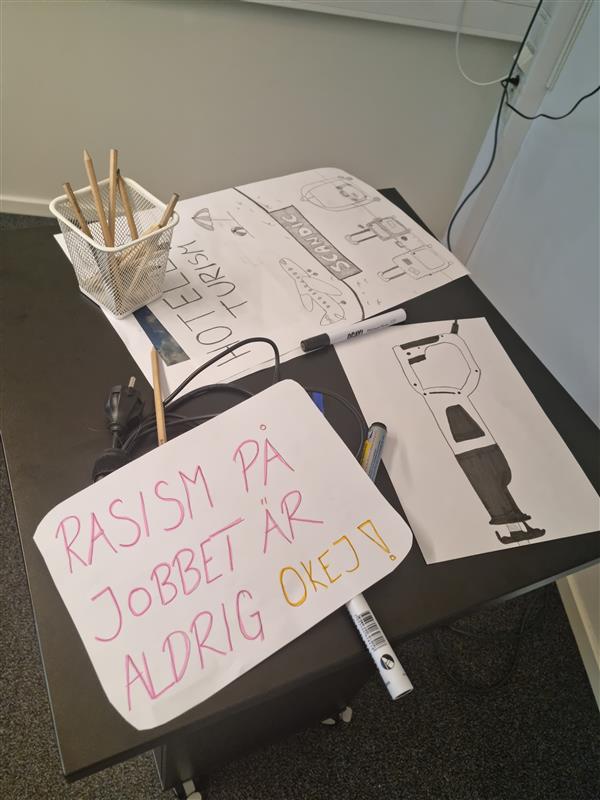 HOTELL
TURISM
SCANDIC
RASISM PÅ
JOBBET ÄR
ALDRIG OKEJ!